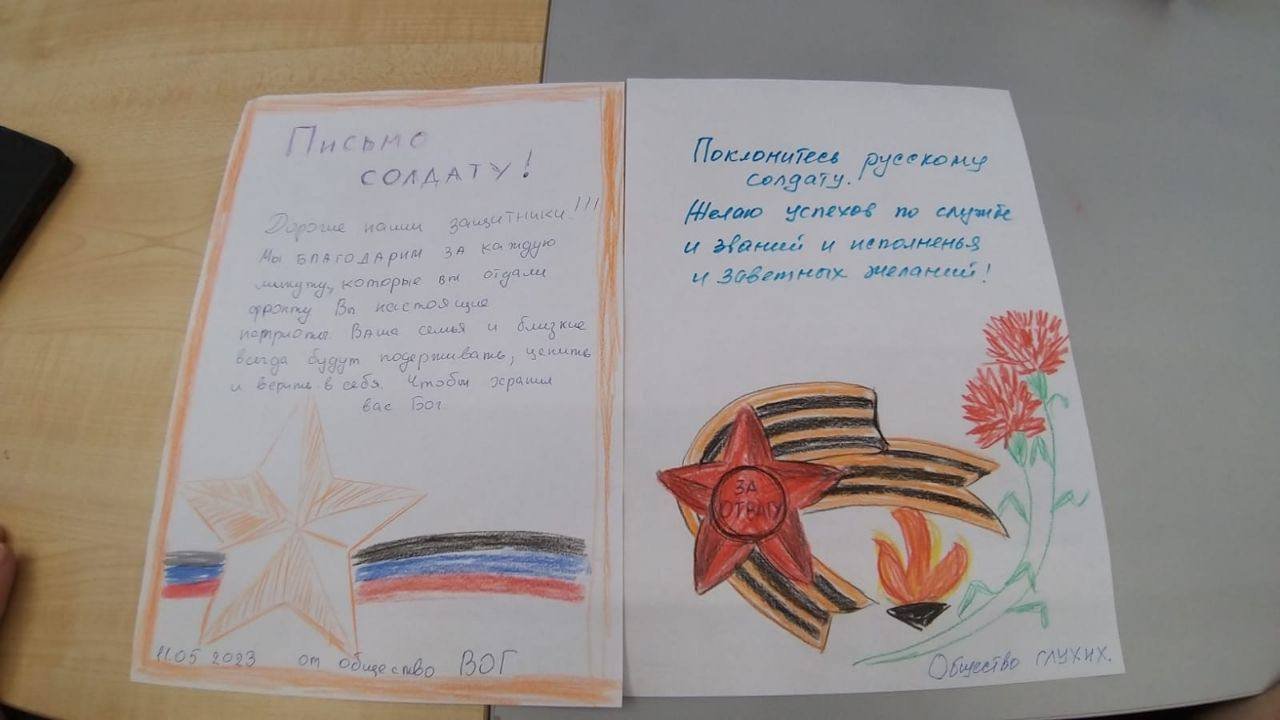 Письмо
СОЛДАТУ!
Дорогие наши защитники!!!
Мы БЛАГОДАРИМ ЗА каждую
минуту, которые вы отдали
фронту Вы настоящие
патриоты. ВАША семья и близкие
всегда будут подерживать, ценить
и верить в себя. Чтобы хранил
вас Бог.
11.05 2023 от общество ВОГ
Поклонитесь русскому
солдату.
Желаю успехов по службе
и званий и исполненья
и заветных желаний!
ЗА
ОТВАГУ
Общество глухих.